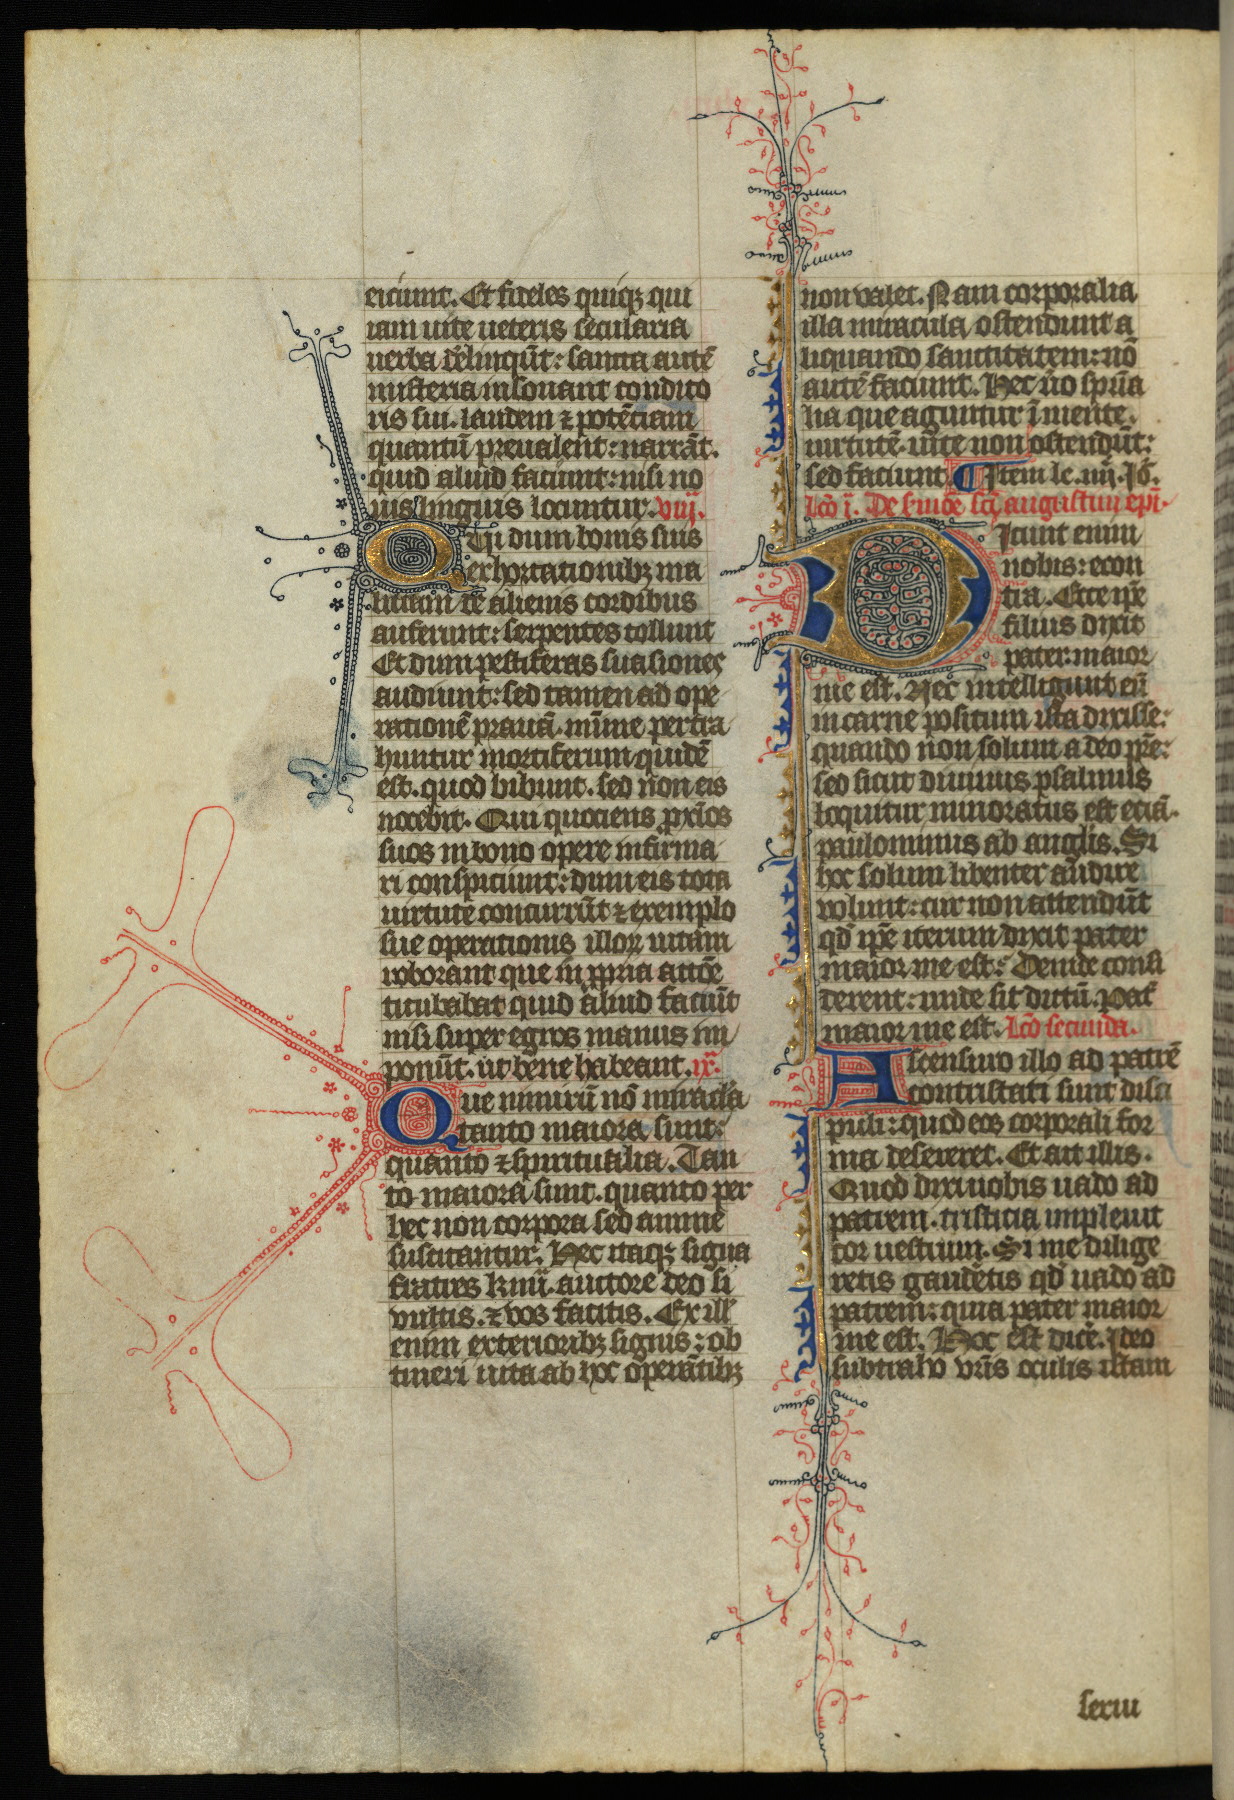 eiciunt. Et fideles quiq; qui
iam uite ueteris secularia
uerba relinqūt: sancta autē
misteria insonant condito
ris sui. laudem ⁊ potētiam
quantū preualent: narrāt.
quid aliud faciunt: nisi no
uis linguis locuntur. viij.
Qui dum bonis suis
exhortationib; ma
litiam de alienis cordibus
auferunt: serpentes tollunt
Et dum pestiferas suasiones
audiunt: sed tamen ad ope
rationē prauā. mīme pertra
huntur mortiferum quidē
est. quod bibunt. sed non eis
nocebit. Qui quociens ꝓxīos
suos in bono opere infirma
ri conspiciunt: dum eis tota
uirtute concurrūt ⁊ exemplo
sue operationis illoꝝ uitam
roborant que in ꝓpria actōe
titubabat quid aliud faciūt
nisi super egros manus im
ponūt. ut bene habeant. ix.
Que nimirū nō miracla
tanto maiora sunt:
quanto ⁊ spiritualia. Tan
to maiora sunt. quanto per
hec non corpora sed anime
suscitantur. Hec itaq; signa
fratres kmī. auctore deo si
vultis. ⁊ vos facitis. Ex ill'
enim exteriorib; signis: ob
tineri uita ab hoc operātib;
non valet. Nam corporalia
illa miracula ostendunt a
liquando sanctitatem: nō
autē faciunt. Hec ūo spūa
lia que aguntur ī mente.
uirtutē uite non ostendūt:
sed faciunt. Item le. iiij. Jō.
lcō i. De s'mōe scī augustini epī.
Dicunt enim
nobis: econ
tra. Ecce ip̄e
filius dixit
pater maior
me est. Nec intelligunt eū
in carne positum ista dixisse:
quando non solum a deo pr̄e:
sed sicut diuinis psalmis
loquitur minoratus est eciā.
paulominus ab anglis. Si
hoc solum libenter audire
volunt: cur non attendūt
qd̄ ip̄e iterum dixit pater
maior me est: Deinde consi
derent: unde sit dictū. Pat'
maior me est. lcō secunda.
Ascensuro illo ad patrē
contristati sunt disci
puli: quod eos corporali for
ma desereret. Et ait illis.
Quod dixi uobis uado ad
patrem. tristicia impleuit
cor uestrum. Si me dilige
retis gaudētis qd̄ uado ad
patrem: quia pater maior
me est. Hoc est dicē. ideo
subtraho vr̄is oculis istam
seruı